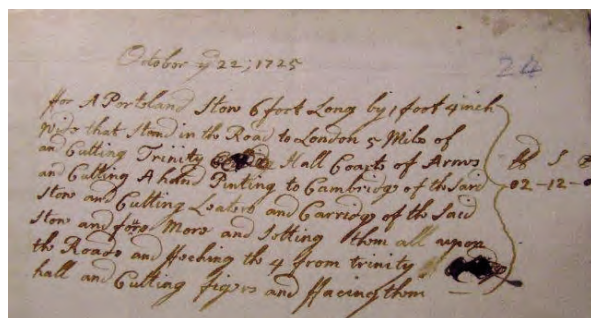 October ye 22; 1725
24
ffor A Portoland Ston 6 foot Long by 1 foot 4 inch
Wide that Stand in the Road to London 5 Mile of
and Cutting Trinity Hall Coarts of Arms
and Cutting A hand Pinting to Cambridge of the Said
Ston and Cutting Leaters and Carridg of the Said
Ston and fore More and Setting them all upon
the Roads and ffeching the 4 from trinity
hall and Cutting figers and ffacing them
S
02-12-